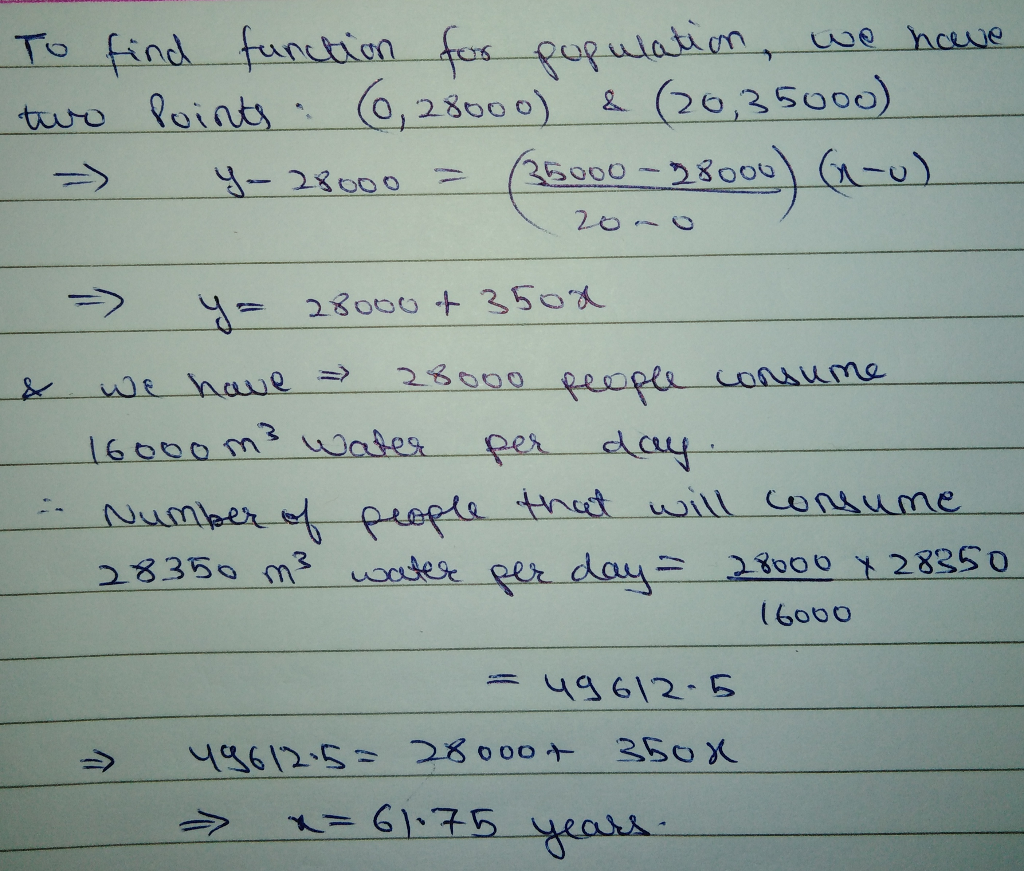 To find function for population, we have
two Points : (0,28000) & (20,35000)
⇒ y - 28000 = (35000 - 28000 / 20 - 0) (x-0)
⇒ y = 28000 + 350x
& we have ⇒ 28000 people consume
16000 m³ water per day.
∴ Number of people that will consume
28350 m³ water per day = 28000 / 16000 × 28350
= 49612.5
⇒ 49612.5 = 28000 + 350x
⇒ x = 61.75 years.